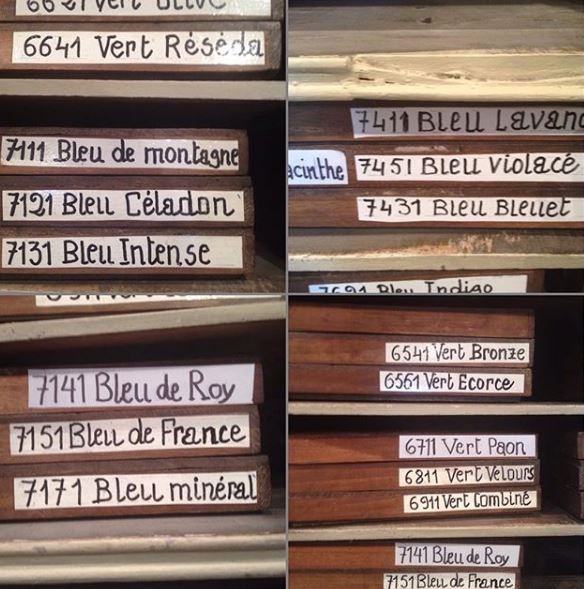 6621 Vert Olive
6641 Vert Réséda
7111 Bleu de montagne
7121 Bleu Céladon
7131 Bleu Intense
7411 Bleu Lavand
acinthe
7451 Bleu violacé
7431 Bleu Bleuet
7691 Bleu Indigo
7141 Bleu de Roy
7151 Bleu de France
7171 Bleu minéral
6541 Vert Bronze
6561 Vert Ecorce
6711 Vert Paon
6811 Vert Velours
6911 Vert Combiné
7141 Bleu de Roy
7151 Bleu de France